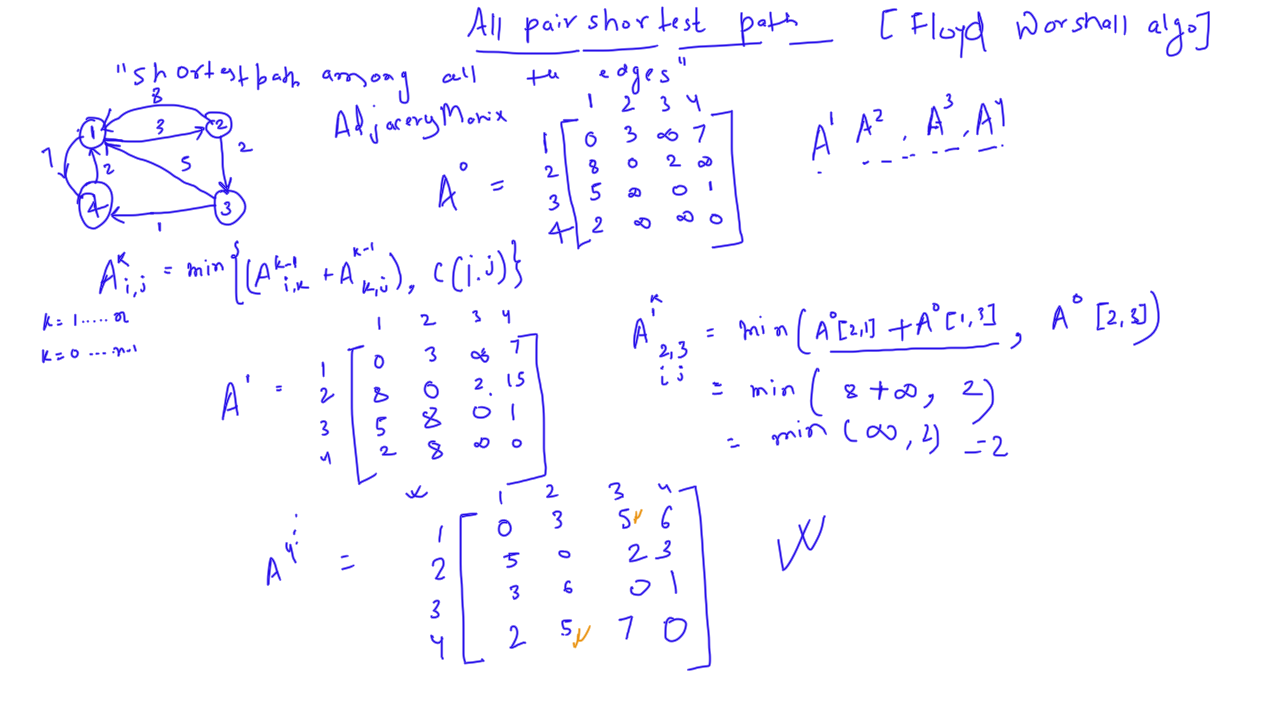 All pair shortest path [Floyd Worshall algo]
"shortest path among all the edges"
Adjacery Matrix
8
1 3 2
7 2 5 2
4 3
1
1 2 3 4
1 0 3 ∞ 7
A⁰ = 2 8 0 2 ∞
3 5 ∞ 0 1
4 2 ∞ ∞ 0
A¹ A², A³, A⁴
Aᵏi,j = min{(Aᵏ⁻¹i,k + Aᵏ⁻¹k,j), C(i.j)}
k=1.....n
k=0 ...n-1
1 2 3 4
1 0 3 ∞ 7
A¹ = 2 8 0 2 15
3 5 8 0 1
4 2 8 ∞ 0
k
A¹2,3 = min(A⁰[2,1] + A⁰[1,3], A⁰[2,3])
i j
= min(8+∞, 2)
= min(∞, 2) = 2
1 2 3 4
1 0 3 5 6
A⁴ = 2 5 0 2 3
3 3 6 0 1
4 2 5 7 0